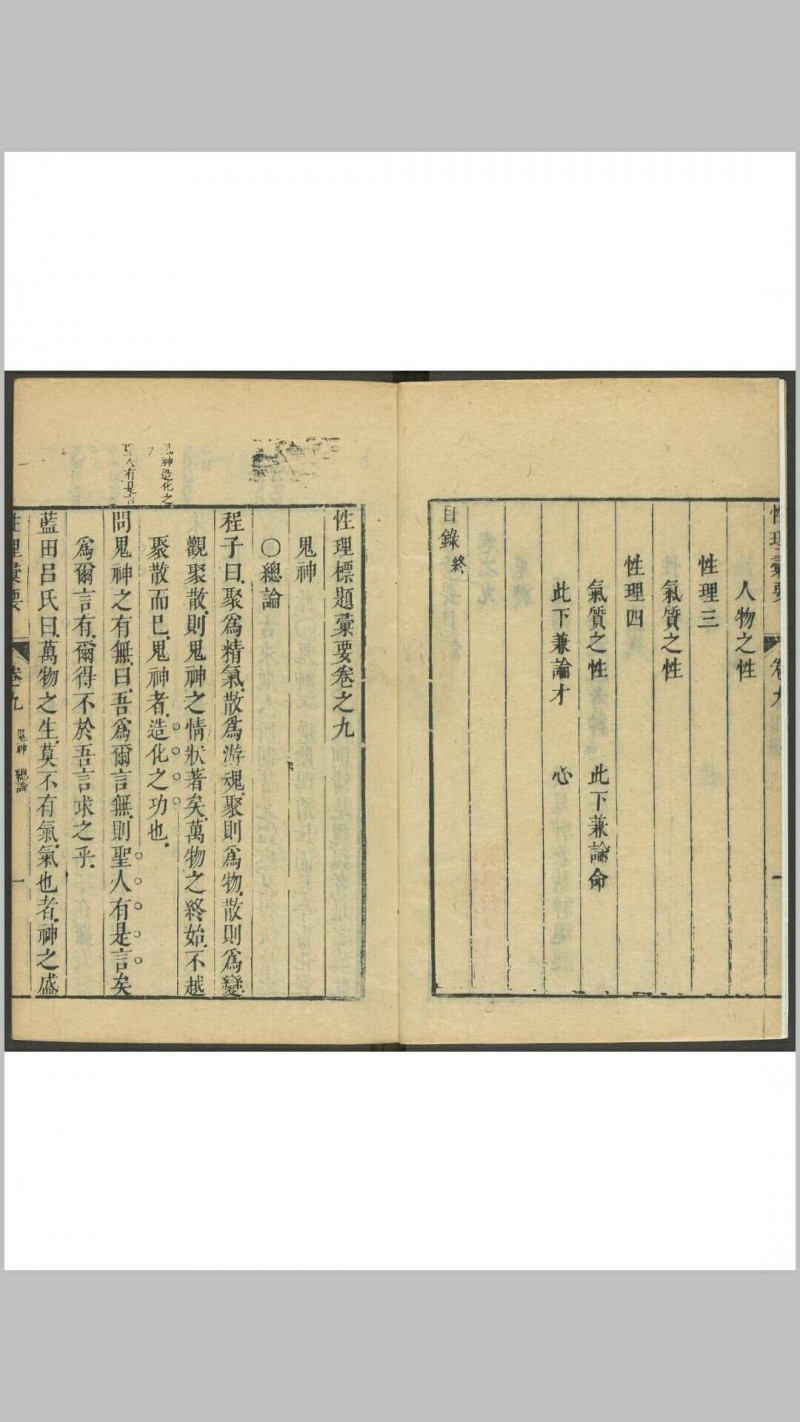 性理彙要
卷九
一
人物之性
性理三
氣質之性
性理四
氣質之性 此下兼論命
此下兼論才 心
目錄終
神造化之
人有是言
性理標題彙要卷之九
鬼神
〇總論
程子曰聚爲精氣散爲游魂聚則爲物散則爲變
觀聚散則鬼神之情狀著矣萬物之終始不越
聚散而已鬼神者造化之功也
問鬼神之有無曰吾爲爾言無則聖人有是言矣
爲爾言有爾得不於吾言求之乎
藍田呂氏曰萬物之生莫不有氣氣也者神之盛
性理彙要
卷九
鬼神 總論
一